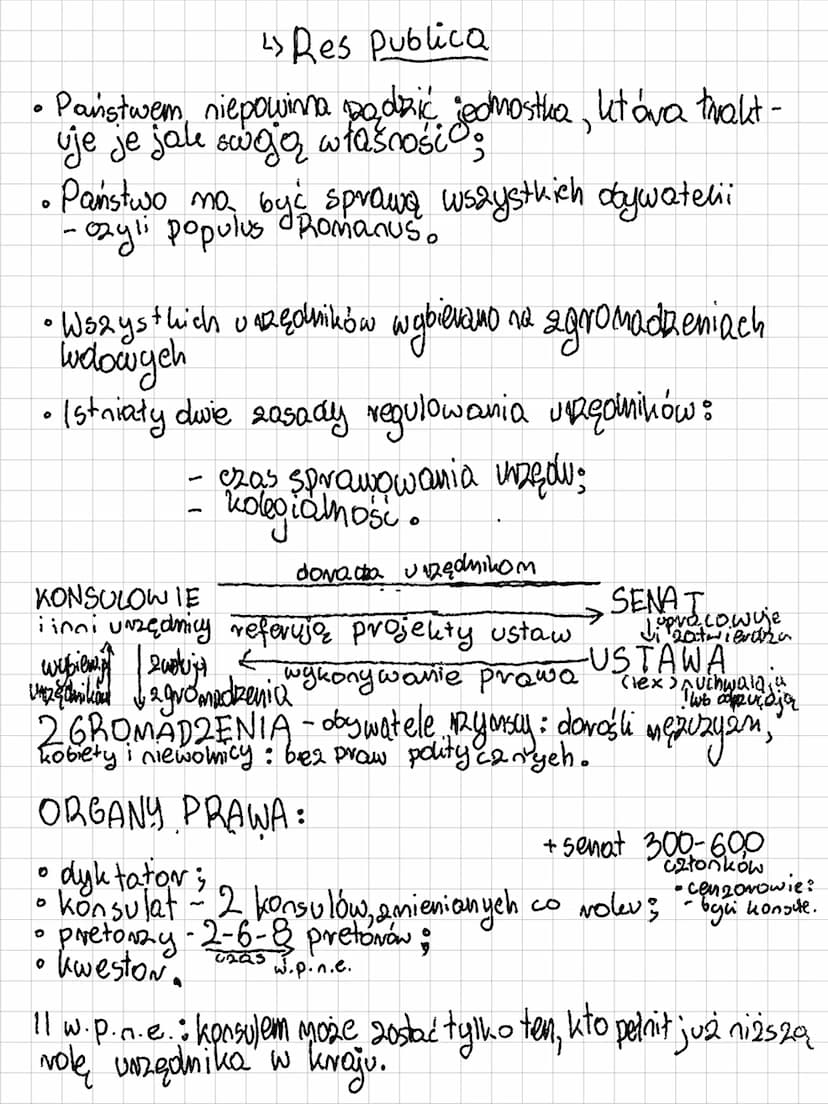 ↳ Res publica
• Państwem niepowinna rządzić jednostka, która trakt-
uje je jak swoją własność;
• Państwo ma być sprawą wszystkich obywateli
- czyli populus Romanus.
• Wszystkich urzędników wybierano na zgromadzeniach
ludowych
• Istniały dwie zasady regulowania urzędników:
- czas sprawowania urzędu;
- kolegialność.
doradza urzędnikom
KONSULOWIE
i inni urzędnicy
referują projekty ustaw
SENAT
↓ opracowuje
i zatwierdza
wykonywanie prawa
USTAWA
(lex)
↑ uchwalają
lub odrzucają
wybierają
urzędników
zwołują
zgromadzenia
ZGROMADZENIA - obywatele rzymscy: dorośli mężczyźni,
kobiety i niewolnicy: bez praw politycznych.
ORGANY PRAWA:
+ senat 300-600
członków
• dyktator;
• konsulat - 2 konsulów, zmienianych co roku;
• cenzorowie:
- byli konsule.
• pretorzy - 2-6-8 pretorów;
czas
w.p.n.e.
• kwestor.
II w.p.n.e.: konsulem może zostać tylko ten, kto pełnił już niższą
rolę urzędnika w kraju.